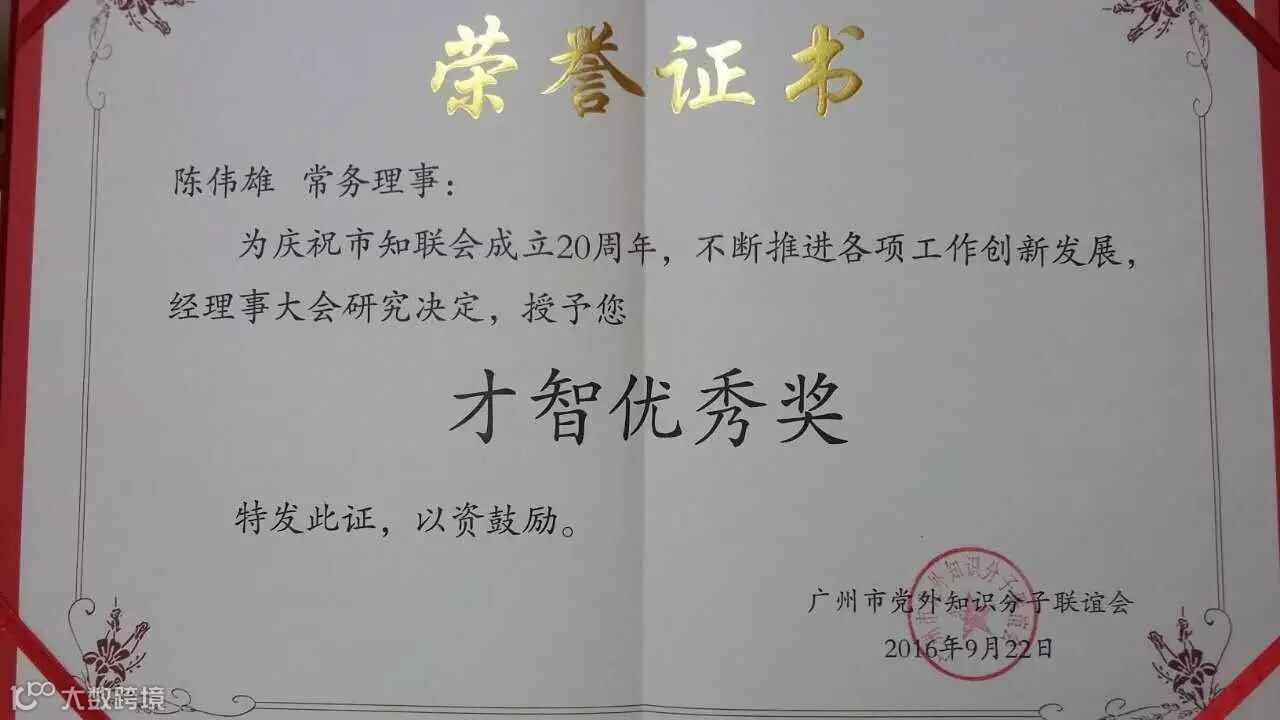 荣誉证书
陈伟雄 常务理事：
为庆祝市知联会成立20周年，不断推进各项工作创新发展，
经理事大会研究决定，授予您
才智优秀奖
特发此证，以资鼓励。
广州市党外知识分子联谊会
2016年9月22日
大数跨境